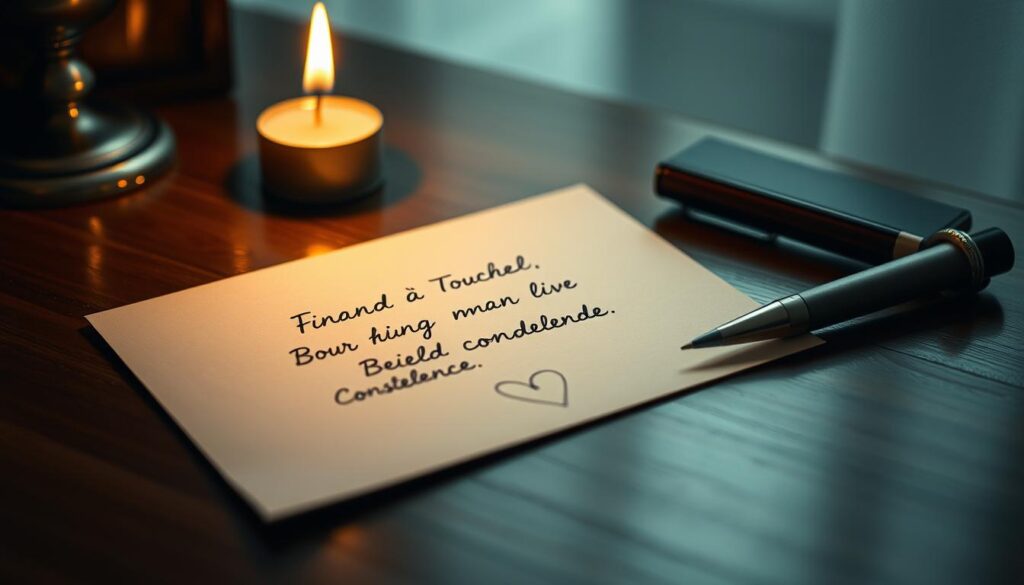 Finand à Touchel.
Bour hiing mnan live
Beield condelende.
Constelence.